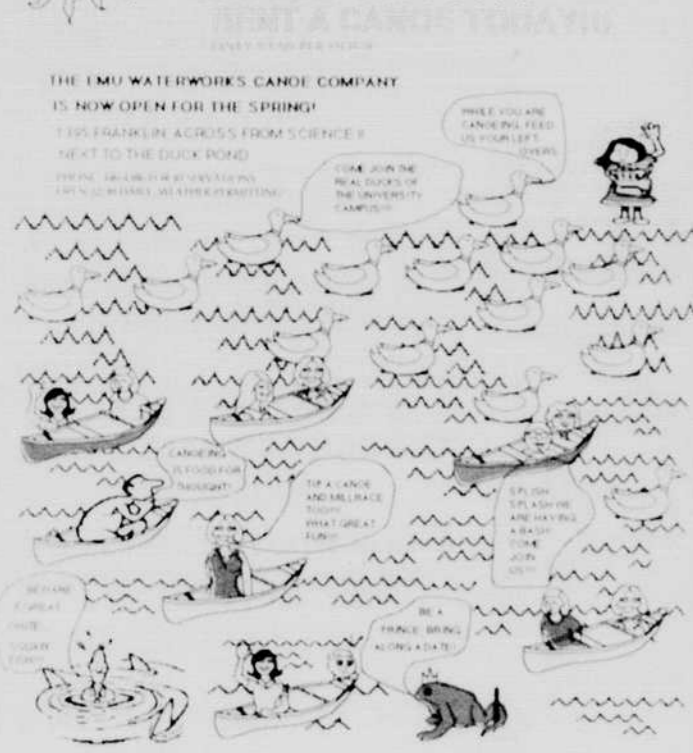 RENT A CANOE TODAY!!!
THE EMU WATERWORKS CANOE COMPANY
IS NOW OPEN FOR THE SPRING!
1395 FRANKLIN ACROSS FROM SCIENCE II
NEXT TO THE DUCK POND
WHILE YOU ARE
CANOEING, FEED
US YOUR LEFT
OVERS
COME JOIN THE
REAL DUCKS OF
THE UNIVERSITY
CAMPUS!!!
CANOEING
IS FOOD FOR
THOUGHT!
TIP A CANOE
AND MILLRACE
TOO!!!
WHAT GREAT
FUN!!!
SPLISH
SPLASH WE
ARE HAVING
A BASH!
COME
JOIN
US!!!
BE A
PRINCE BRING
ALONG A DATE!
BEWARE
GREAT